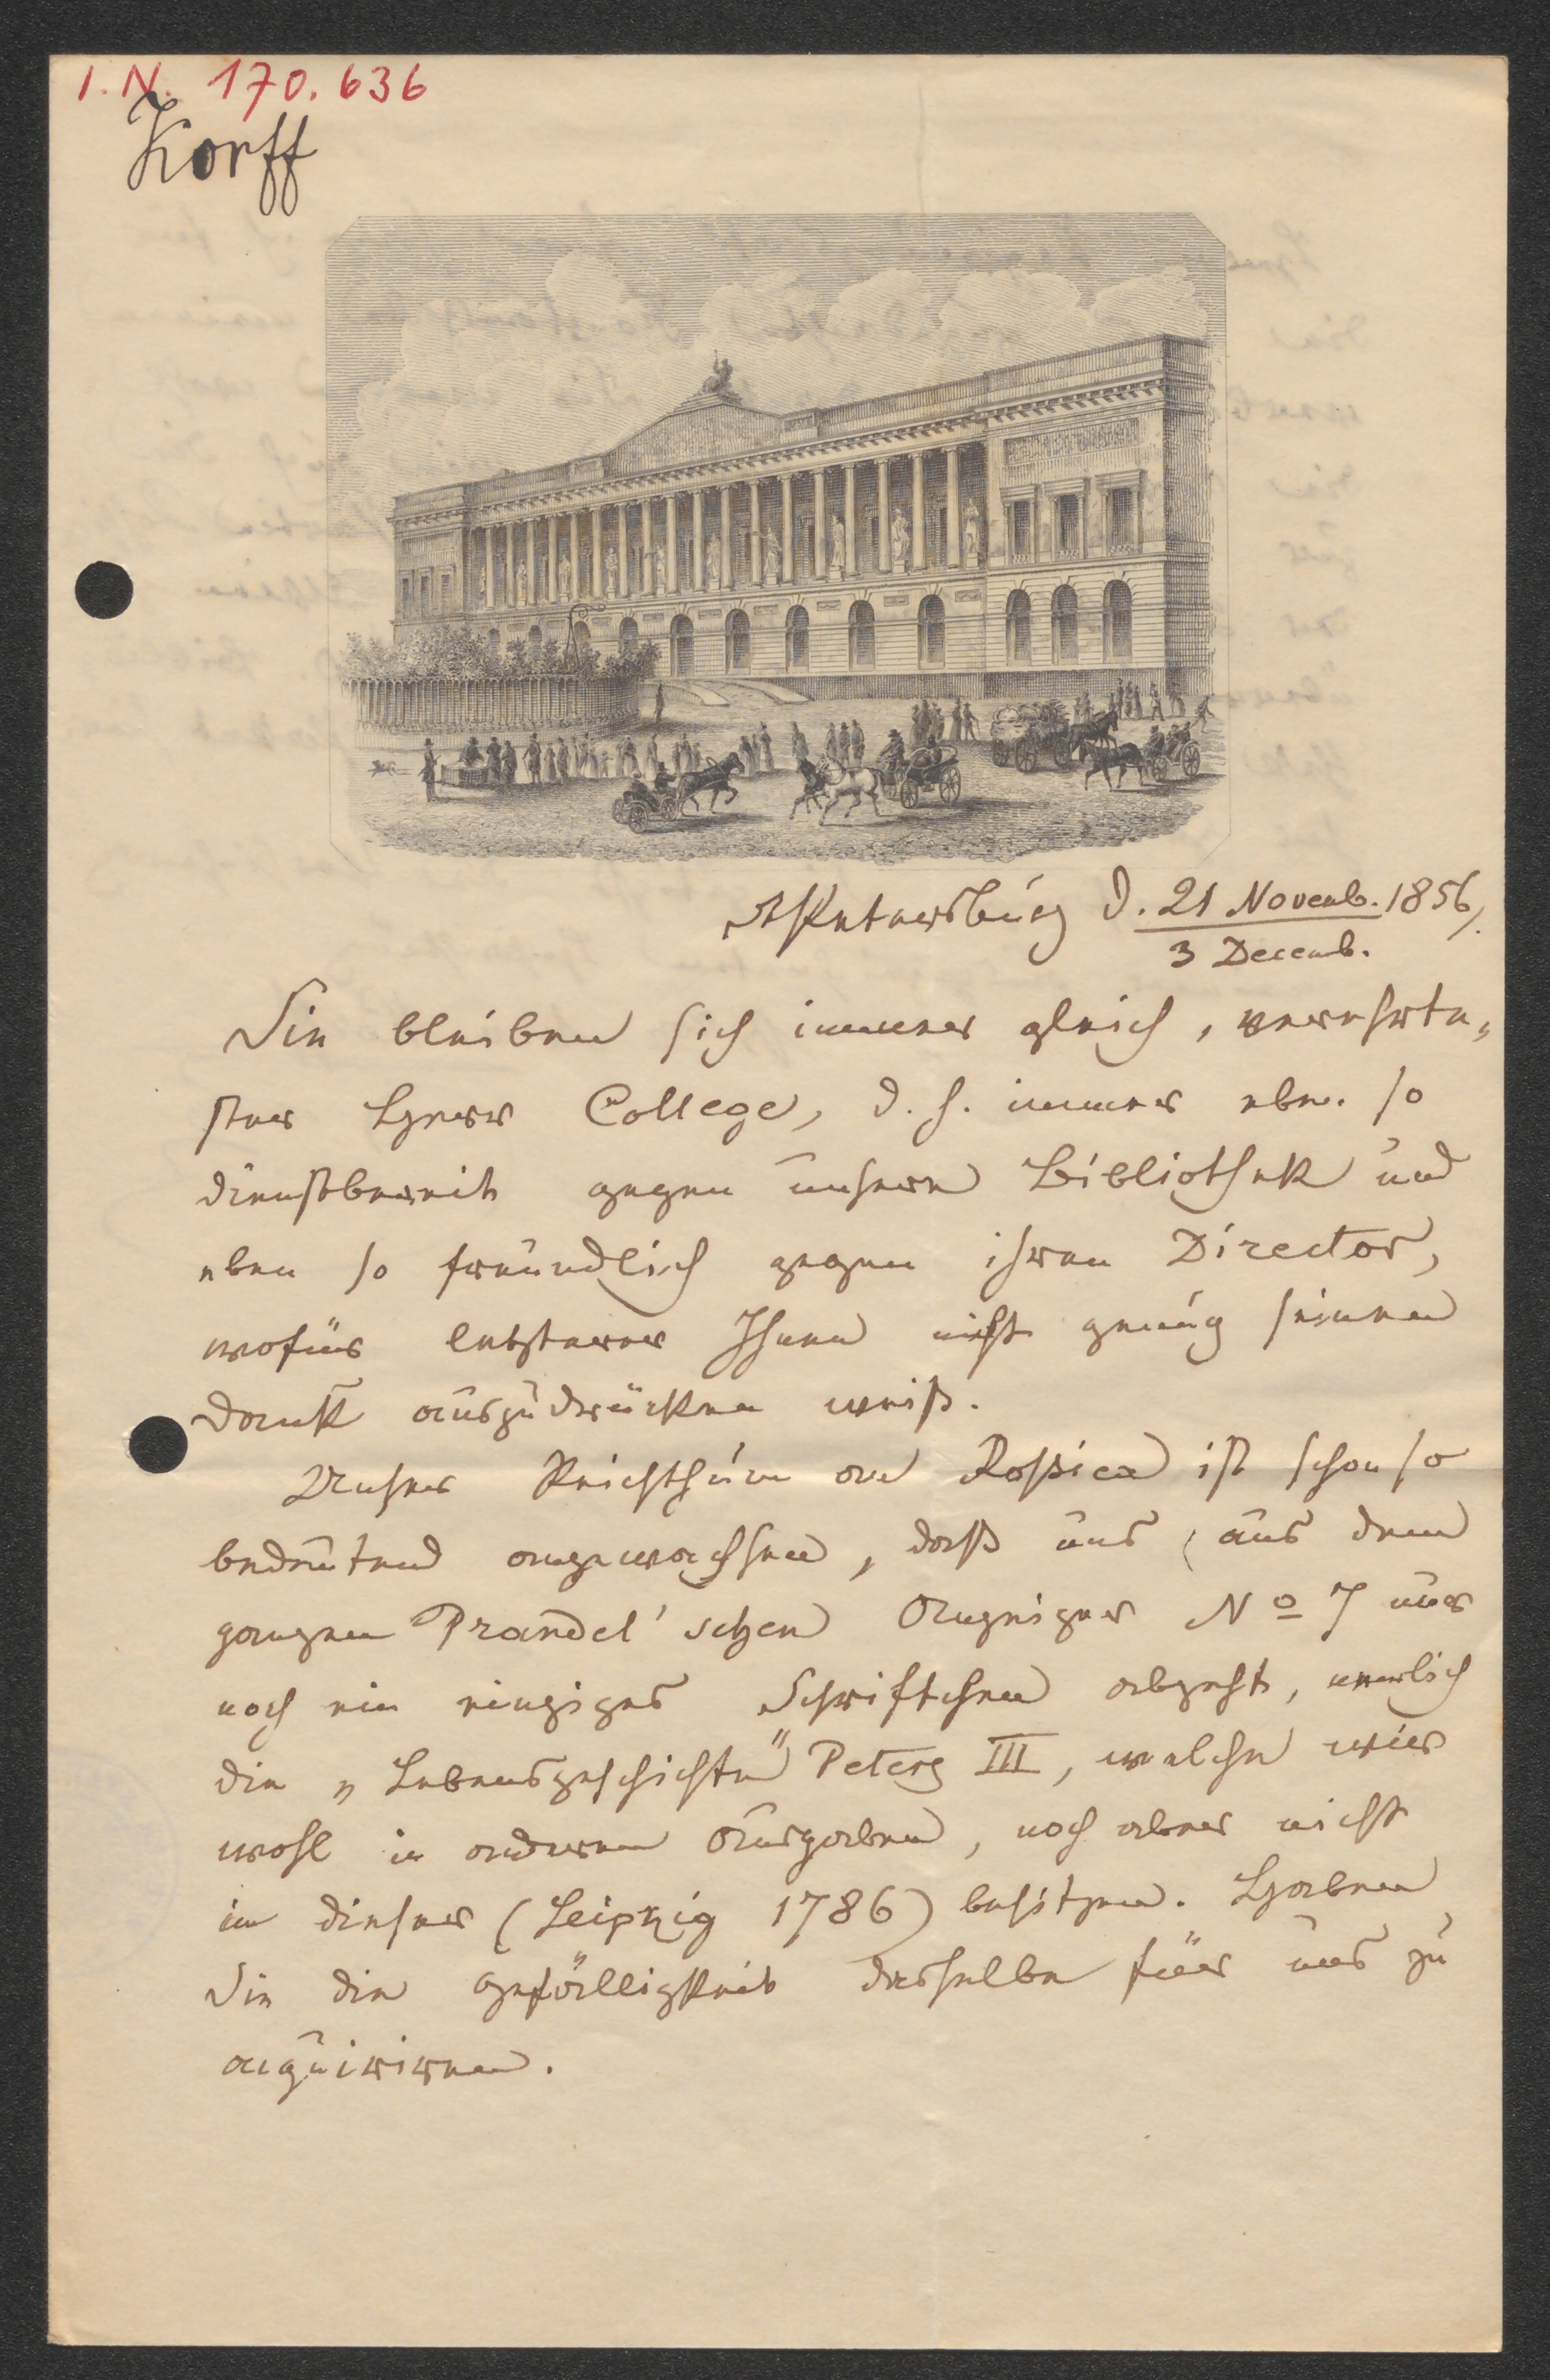 I.N. 170.636
Korff
St Petersburg d. 21 Novemb. 1856.
3 Decemb.
Sie bleiben sich immer gleich, verehrte„
ster Herr College, d. h. immer eben so
dienstbereit gegen unsere Bibliothek und
eben so freundlich gegen ihren Director,
wofür letzterer Ihnen nicht genug seinen
Dank auszudrücken weiß.
Unser Reichthum an Rossica ist schon so
bedeutend angewachsen, daß uns aus dem
ganzen Prandel'schen Anzeiger No 7 nur
noch ein einziges Schriftchen abgeht, nemlich
die „Lebensgeschichte" Peters III, welche wir
wohl in anderen Ausgaben, noch aber nicht
in dieser (Leipzig 1786) besitzen. Haben
Sie die Gefälligkeit dasselbe für uns zu
acquiriren.